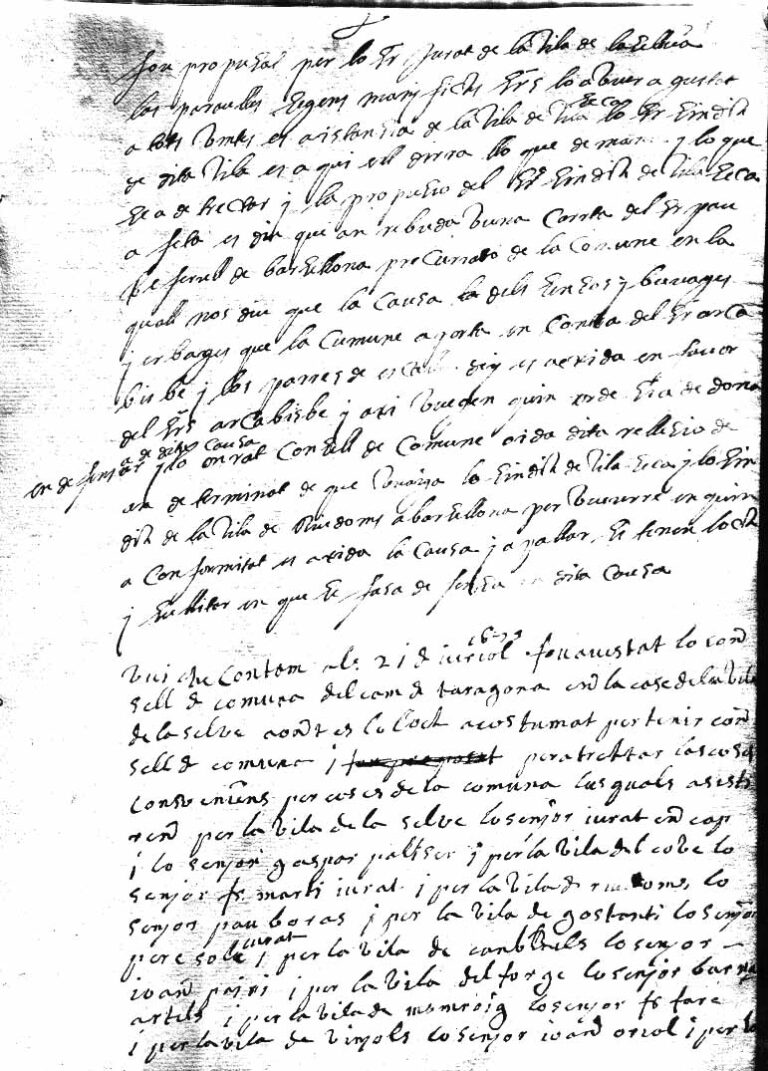 fou proposat per lo Sr Jurat de la vila de la selva
las paraulles segens mags fichs Srs lo aver a gustat
a tots vntes es asistensia de la vila de vila seca lo Sr sindich
de dita vila es a qui ell dirra llo que demana y lo que
se a de tractar y la propusio del Sr sindich de vila seca
a feta es dir que an rebuda vuna Carta del Sr pau
de barsellona procurado de la Comune en la
quall nos diu que la Causa la dels sensos y
y erbages que la Comune aporta en Contra del Sr arca
bisbe y los pares de es exida en favor
del Srs arcabisbe y axi vuegen quin orde se a de dona
en de fensar a de dita Causa y lo onrat Consell de Comune oida dita rellasio
an de terminat de que vnaja lo sindich de vila seca y lo sin
dich de la vila de Riudoms a barsellona per veurre en quin
a Conformitat es axida la causa y apallar si tenen loch
y sullisitar en que se fasa de fensa en dita Causa
vui che contam als 21 d juriol fou aiustat lo con
sell d comuna del cam d taragona en la case de la vila
de la selve aont es lo loch acostumat per tenir con
sell d comuna i fou proposat per a trettar las coses
conveniens per coses de la comuna los quals asisti
ren per la vila de la selve lo senjor iurat en cap
i lo senjor gaspar paltser i per la vila del cove lo
senjor fs marti iurat i per la vila d riudoms lo
senjor pau boras i per la vila de gostanti lo senjor
pere sole iurat i per la vila de canbrils lo senjor
ioan i per la vila del forge lo senjor
artels i per la vila de munroig lo senjor fs fare
i per la vila de vinjols lo senjor ioan oriol i per la